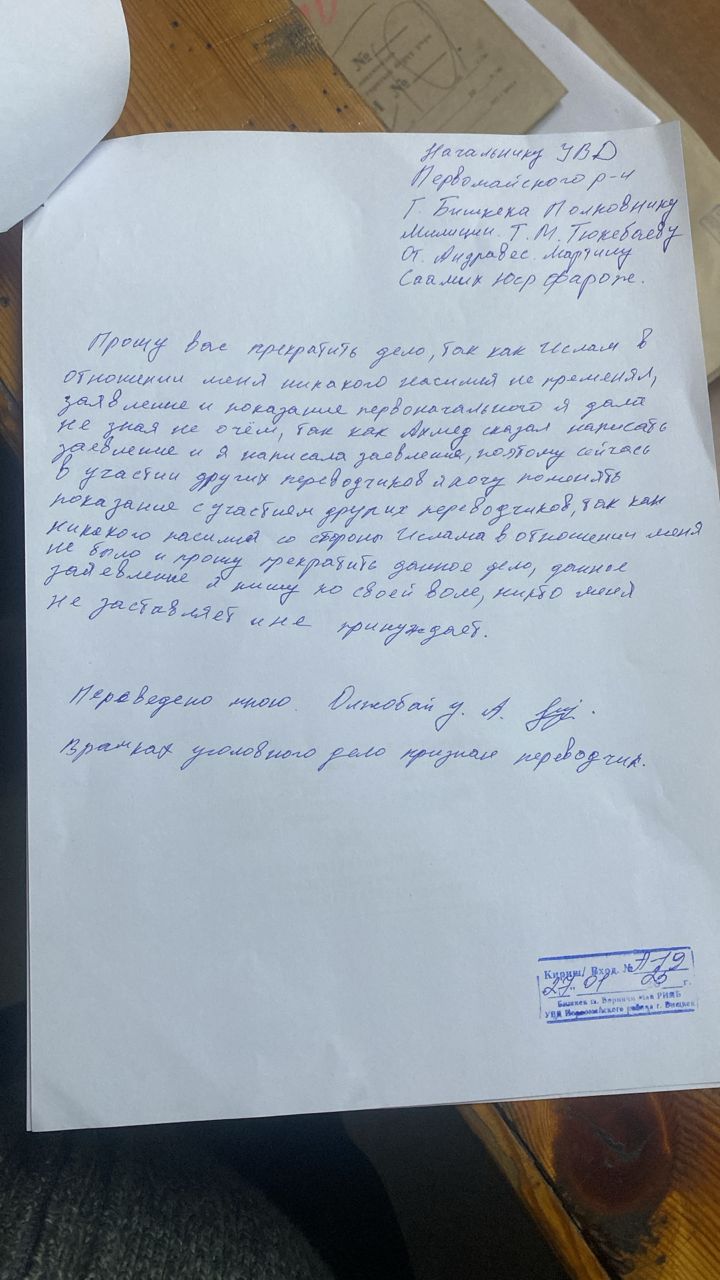 №
№
Начальнику УВД
Первомайского р-н
Г. Бишкека Полковнику
Милиции. Т. М. Тюкебаеву
От. Андравес. Мартину
Саамих Юср Фароже.
Прошу вас прекратить дело, так как Ислам в
отношении меня никакого насилия не пременял,
заявление и показание первоначального я дала
не зная не очём, так как Ахмед сказал написать
заевление и я написала заевление, поэтому сейчась
в участии других переводчиков я хочу поменять
показание с участием других переводчиков, так как
никакого насилия со стороны Ислама в отношении меня
не было и прошу прекратить данное дело, данное
заяевление я пишу по своей воле, никто меня
не заставляет и не принуждает.
Переведено мною. Олжобай у. А.
В рамках уголовного дело признан переводчик.
Кириш/ Вход. № А-79
"27" 01 25 г.
УВД Первомайского района г. Бишкек